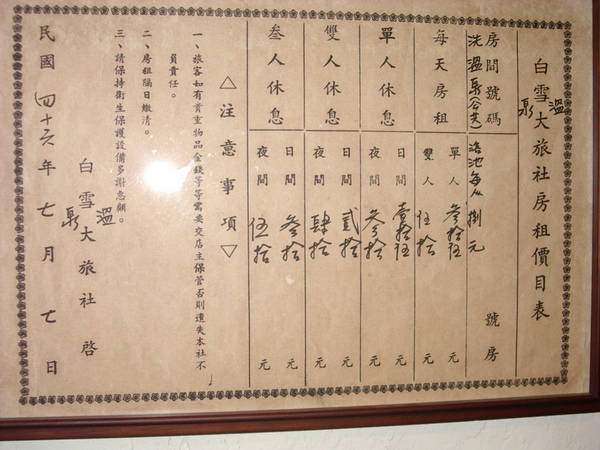 白雪溫泉大旅社房租價目表
房間號碼 號房
洗溫泉(公共)浴池每次捌元
每天房租
單人 叁拾伍 元
雙人 伍拾 元
單人休息
日間 壹拾伍 元
夜間 叁拾 元
雙人休息
日間 貳拾 元
夜間 肆拾 元
叁人休息
日間 叁拾 元
夜間 伍拾 元
△注意事項▽
一、旅客如有貴重物品金錢等等需要交店主保管否則遺失本社不
負責任。
二、房租隔日繳清。
三、請保持衛生保護設備多謝惠顧。
白雪溫泉大旅社 啓
民國四十六年七月七日